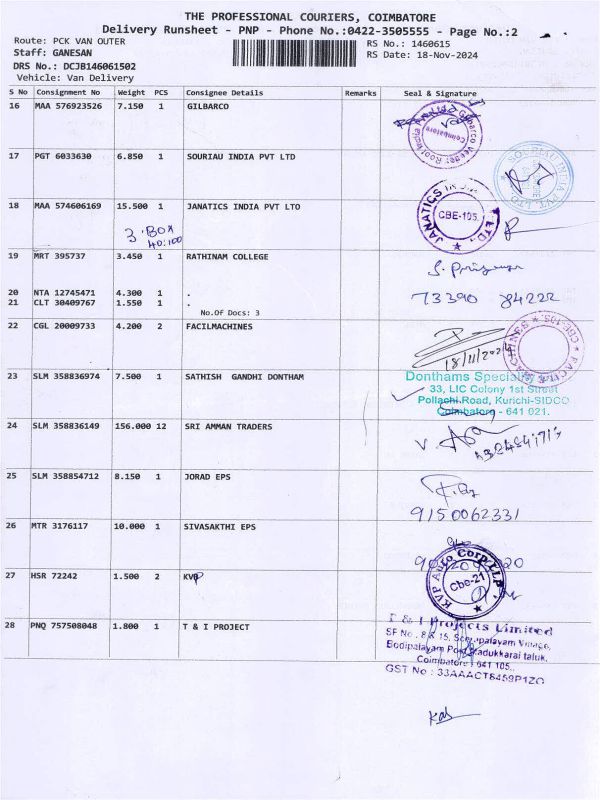 THE PROFESSIONAL COURIERS, COIMBATORE
Delivery Runsheet - PNP - Phone No.:0422-3505555 - Page No.:2
Route: PCK VAN OUTER
RS No.: 1460615
Staff: GANESAN
RS Date: 18-Nov-2024
DRS No.: DCJB146061502
Vehicle: Van Delivery
S No Consignment No Weight PCS Consignee Details Remarks Seal & Signature
16 MAA 576923526 7.150 1 GILBARCO
Gilbarco Veeder Root India
Coimbatore
17 PGT 6033630 6.850 1 SOURIAU INDIA PVT LTD
SOURIAU INDIA PVT. LTD
18 MAA 574606169 15.500 1 JANATICS INDIA PVT LTD
3 BOX
40:100
JANATICS LTD.
CBE-105.
19 MRT 395737 3.450 1 RATHINAM COLLEGE
20 NTA 12745471 4.300 1 .
73390 84222
21 CLT 30409767 1.550 1 .
No.Of Docs: 3
22 CGL 20009733 4.200 2 FACILMACHINES
18/11/2024
CBE-105.
23 SLM 358836974 7.500 1 SATHISH GANDHI DONTHAM
Donthams
33, LIC Colony 1st Street
Pollachi Road, Kurichi-SIDCO
Coimbatore - 641 021.
24 SLM 358836149 156.000 12 SRI AMMAN TRADERS
25 SLM 358854712 8.150 1 JORAD EPS
9150062331
26 MTR 3176117 10.000 1 SIVASAKTHI EPS
27 HSR 72242 1.500 2 KVP
KVP Auto Corp LLP
Cbe-21
28 PNQ 757508048 1.800 1 T & I PROJECT
T & I Projects Limited
SF No. 8 & 15, Village,
Bodipalayam Post, Madukkarai taluk,
Coimbatore - 641 105.